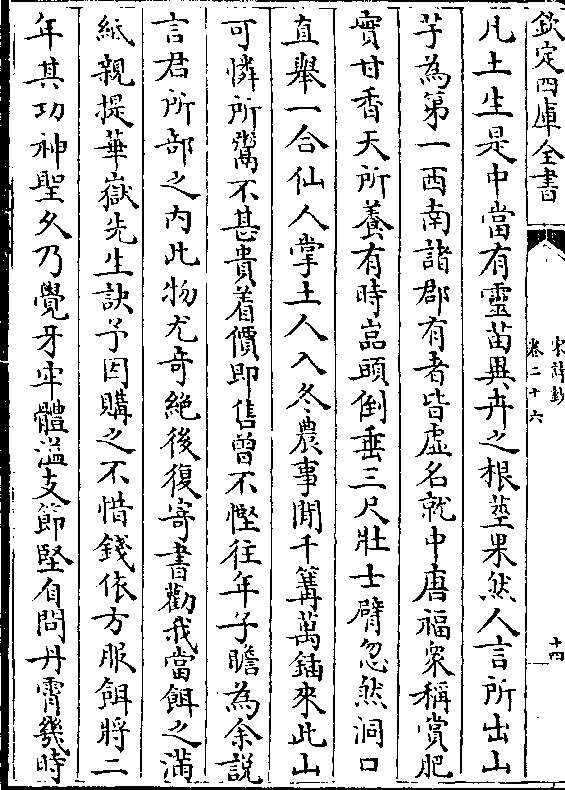 欽定四庫全書
宋詩鈔
卷二十六
十四
凡土生是中當有靈苗異卉之根莖果然人言所出山
芋為第一西南諸郡有者皆虛名就中唐福衆稱賞肥
實甘香天所養有時嵓頭倒垂三尺壯士臂忽然洞口
直舉一合仙人掌土人入冬農事閒千篝萬鍤來此山
可憐所鬻不甚貴着價即售曾不慳往年子瞻為余說
言君所部之內此物尤奇絶後復寄書勸我當餌之滿
紙親提華嶽先生訣予因購之不惜錢依方服餌將二
年其功神聖久乃覺牙牢體溢支節堅自問丹霄幾時